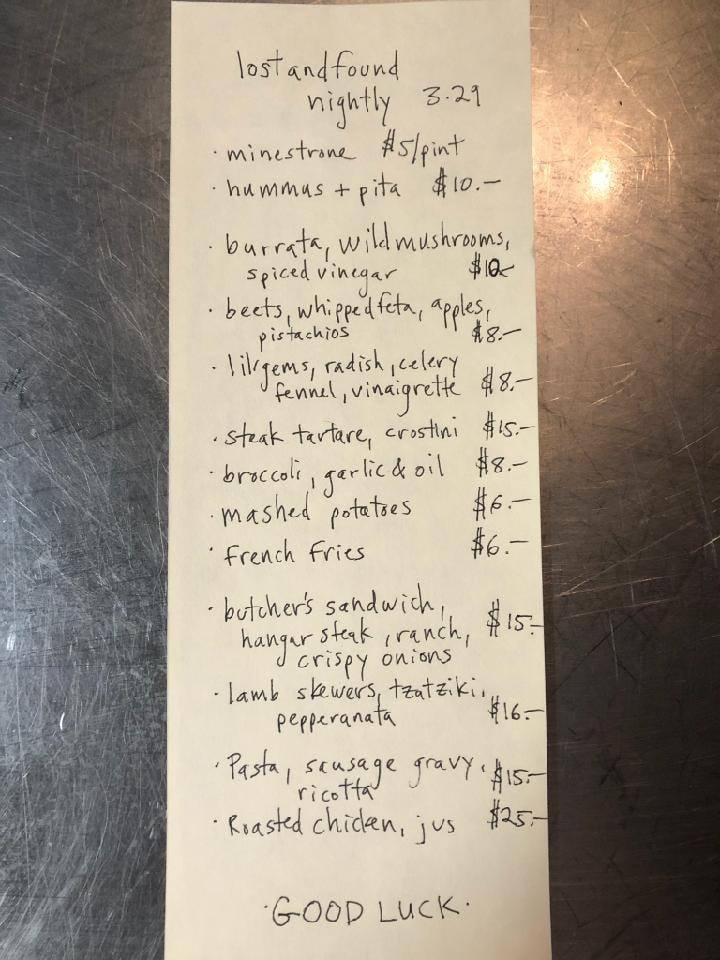 lost and found
nightly 3.29
· minestrone $5/pint
· hummus + pita $10.—
· burrata, wild mushrooms,
spiced vinegar $10—
· beets, whipped feta, apples,
pistachios $8.—
· lil gems, radish, celery
fennel, vinaigrette $8.—
· steak tartare, crostini $15.—
· broccoli, garlic & oil $8.—
· mashed potatoes $6.—
· french fries $6.—
· butcher's sandwich, $15.—
hangar steak, ranch,
crispy onions
· lamb skewers, tzatziki,
pepperanata $16.—
· Pasta, sausage gravy, $15.—
ricotta
· Roasted chicken, jus $25.—
· GOOD LUCK ·